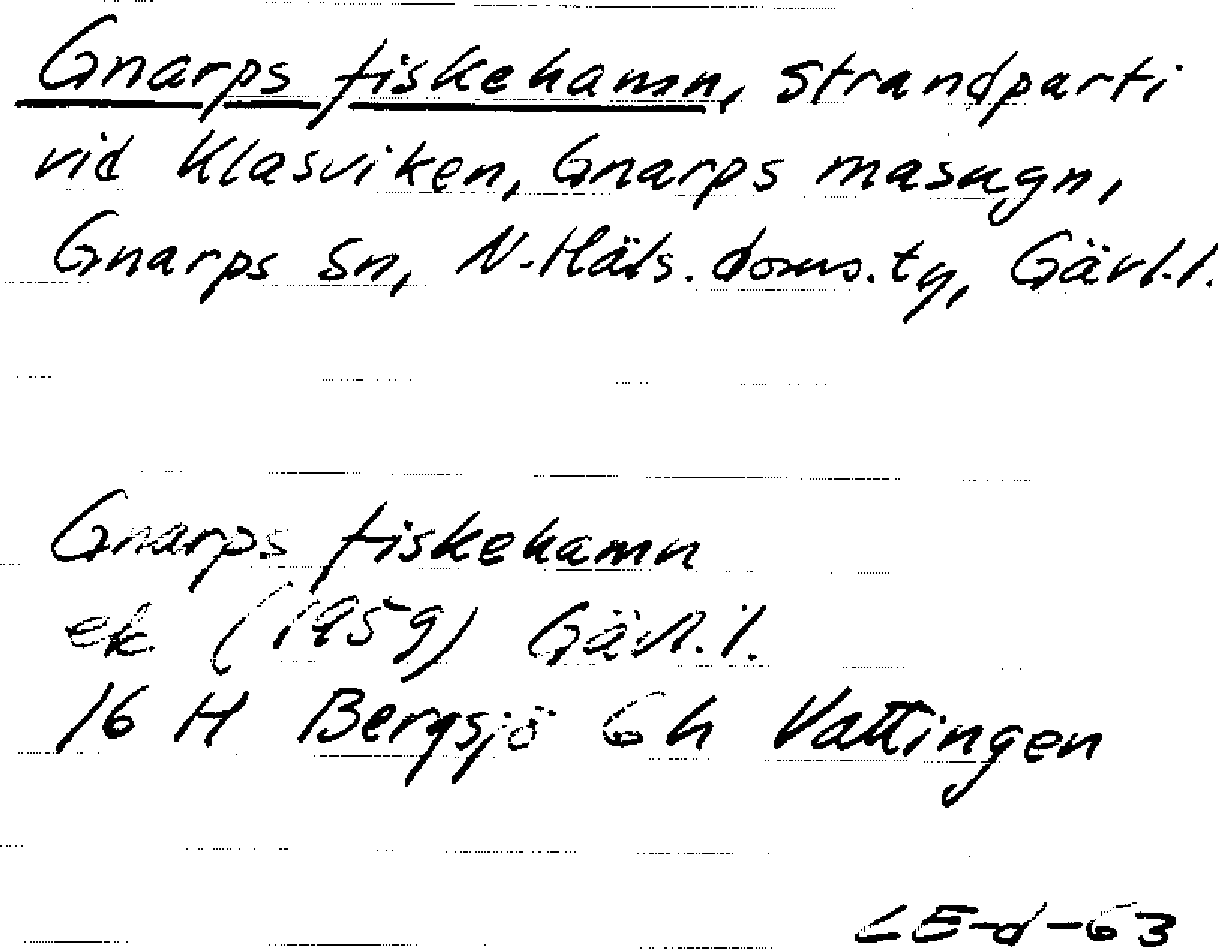 Gnarps fiskehamn, Strandparti
vid Klasviken, Gnarps masugn,
Gnarps sn, N. Häls. doms. tg, Gävl. l.
Gnarps fiskehamn
ek (1959) Gävl. l.
16 H Bergsjö 6h Vattingen
LE-d-63